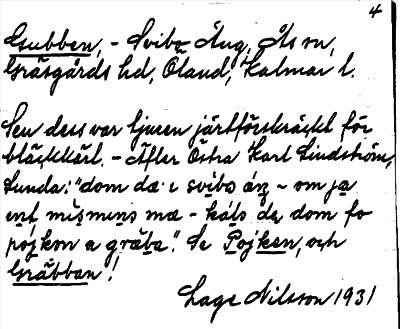 4
Gubben, - Svibo Äng, Ås sn,
Gräsgårds hd, Öland, Kalmar l.
Sen dess var tjuren järtförskräckt för
bläckkärl. - Äfter Östra Karl Lindström,
Lunda: "dom dæ i svibo áng - om ja
ent mismins mæ - kals de dom fo
pojkon a gräba". Se Pojken, och
Gräbban!
Lage Nilsson 1931